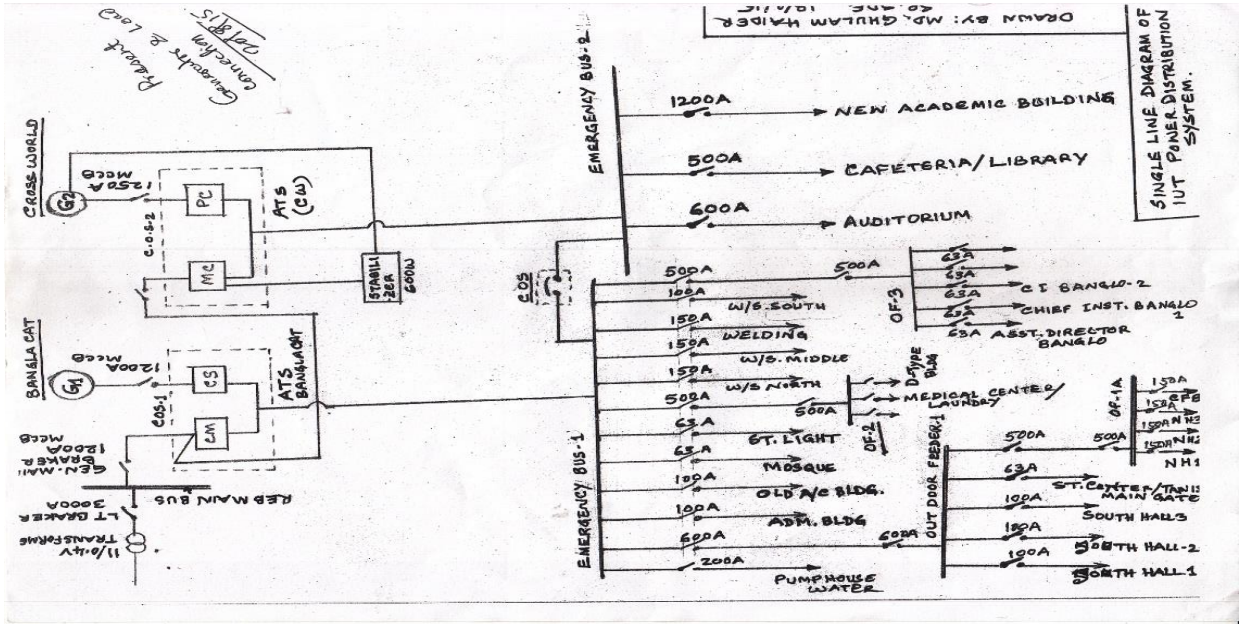 Present
Gensets & Load
Connection
20/8/15
DRAWN BY: MD. GHULAM HAIDER
SINGLE LINE DIAGRAM OF
IUT POWER DISTRIBUTION
SYSTEM.
CROSS WORLD
G2
1250A
MCCB
C.O.S-2
PC
MC
ATS
(CW)
STABILI
ZER
600W
BANGLA CAT
G1
1200A
MCCB
COS-1
CS
CM
ATS
BANGLACAT
GEN-MAI
BRAKER
1200A
MCCB
REB MAIN BUS
LT BRAKER
3000A
TRANSFORME
11/0.4V
EMERGENCY BUS-2
1200A
NEW ACADEMIC BUILDING
500A
CAFETERIA/LIBRARY
600A
AUDITORIUM
COS
EMERGENCY BUS-1
500A
500A
OF-3
63A
63A
63A
C I BANGLO-2
63A
CHIEF INST. BANGLO
1
63A
63A
ASST. DIRECTOR
BANGLO
100A
W/S. SOUTH
150A
WELDING
150A
W/S. MIDDLE
150A
W/S NORTH
500A
500A
OF-2
D-TYPE
BLDG
MEDICAL CENTER/
LAUNDRY
63A
ST. LIGHT
63A
MOSQUE
100A
OLD A/C BLDG.
100A
ADM. BLDG
600A
600A
OUT DOOR FEEDER-1
500A
500A
OF-1A
150A
150A
150A
150A
NH1
63A
ST. CENTER/TANIS
MAIN GATE
100A
SOUTH HALL 3
100A
HALL-2
100A
HALL 1
200A
PUMP HOUSE
WATER